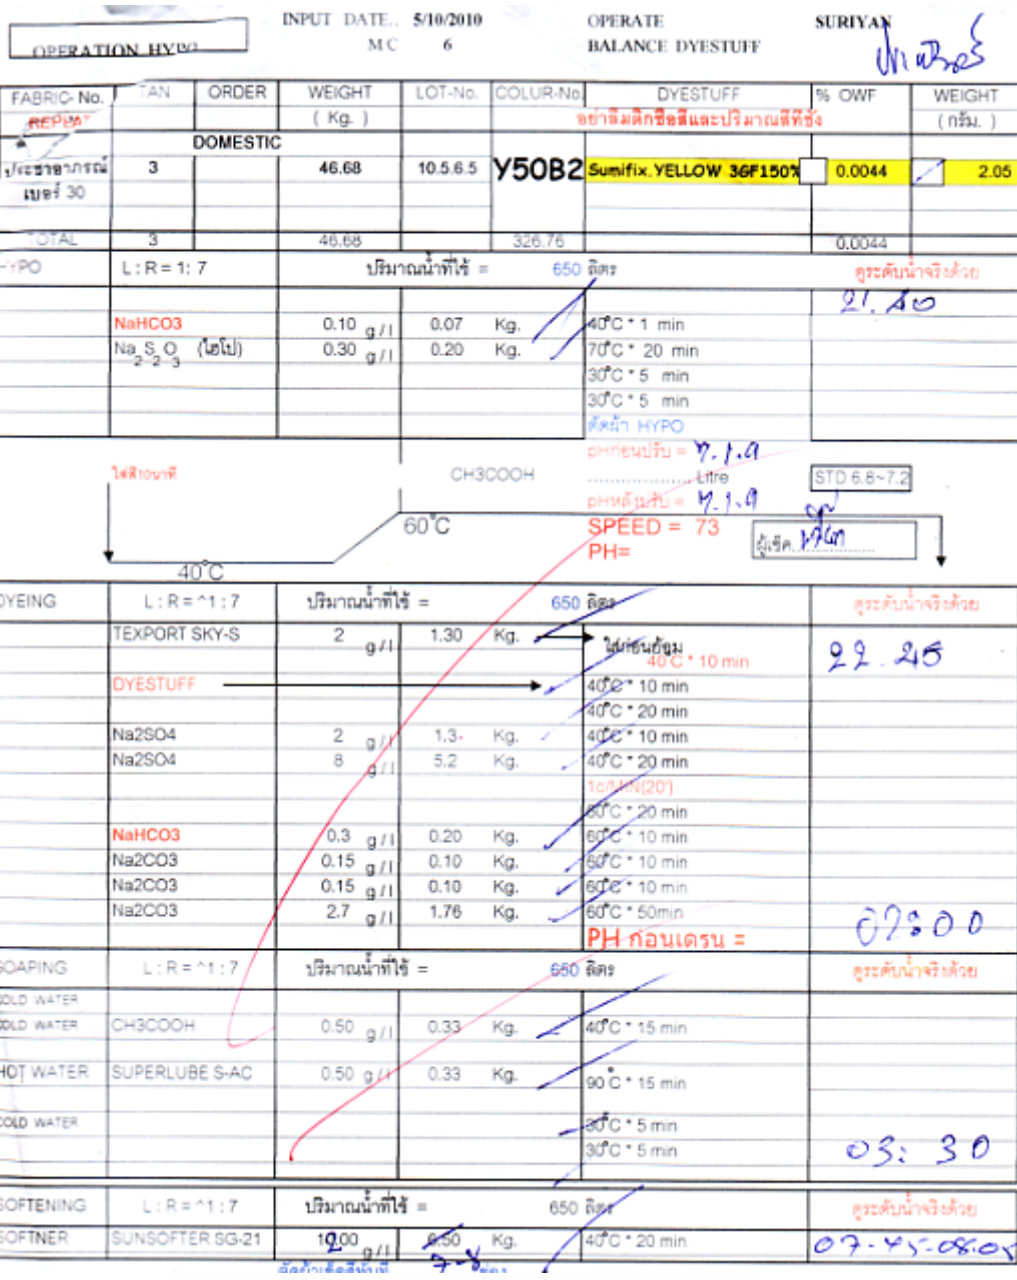 INPUT DATE.. 5/10/2010 OPERATE SURIYAN
OPERATION HYPO M C 6 BALANCE DYESTUFF
FABRIC- No. TAN ORDER WEIGHT LOT-No. COLUR-No. DYESTUFF % OWF WEIGHT
REPEAT ( Kg. ) อย่าลืมติกชื่อสีและปริมาณสีที่ชั่ง ( กรัม. )
DOMESTIC
ประชาอาภรณ์ 3 46.68 10.5.6.5 Y50B2 Sumifix.YELLOW 3GF150% 0.0044 2.05
เบอร์ 30
TOTAL 3 46.68 326.76 0.0044
HYPO L : R = 1: 7 ปริมาณน้ำที่ใช้ = 650 ลิตร ดูระดับน้ำจริงด้วย
21.40
NaHCO3 0.10 g / l 0.07 Kg. 40°C * 1 min
Na2S2O3 (ไฮโป) 0.30 g / l 0.20 Kg. 70°C * 20 min
30°C * 5 min
30°C * 5 min
ตัดผ้า HYPO
pHก่อนปรับ = 7.1.9
ใส่สี10นาที CH3COOH .................. Litre STD 6.8~7.2
pHหลังปรับ = 7.1.9
60°C SPEED = 73
ผู้เช็ค
PH=
40°C
DYEING L : R = ^1 : 7 ปริมาณน้ำที่ใช้ = 650 ลิตร ดูระดับน้ำจริงด้วย
TEXPORT SKY-S 2 g / l 1.30 Kg. ใส่ก่อนย้อม 22.45
40 C * 10 min
DYESTUFF 40°C * 10 min
40°C * 20 min
Na2SO4 2 g / l 1.3 Kg. 40°C * 10 min
Na2SO4 8 g / l 5.2 Kg. 40°C * 20 min
1c/MIN(20')
60°C * 20 min
NaHCO3 0.3 g / l 0.20 Kg. 60°C * 10 min
Na2CO3 0.15 g / l 0.10 Kg. 60°C * 10 min
Na2CO3 0.15 g / l 0.10 Kg. 60°C * 10 min
Na2CO3 2.7 g / l 1.76 Kg. 60°C * 50min
PH ก่อนเดรน = 02:00
SOAPING L : R = ^1 : 7 ปริมาณน้ำที่ใช้ = 650 ลิตร ดูระดับน้ำจริงด้วย
COLD WATER
COLD WATER CH3COOH 0.50 g / l 0.33 Kg. 40°C * 15 min
HOT WATER SUPERLUBE S-AC 0.50 g / l 0.33 Kg. 90°C * 15 min
COLD WATER 30°C * 5 min
30°C * 5 min 03: 30
SOFTENING L : R = ^1 : 7 ปริมาณน้ำที่ใช้ = 650 ลิตร ดูระดับน้ำจริงด้วย
SOFTNER SUNSOFTER SG-21 10.00 2 g / l 6.50 Kg. 40°C * 20 min 07-45-08.05
7-8